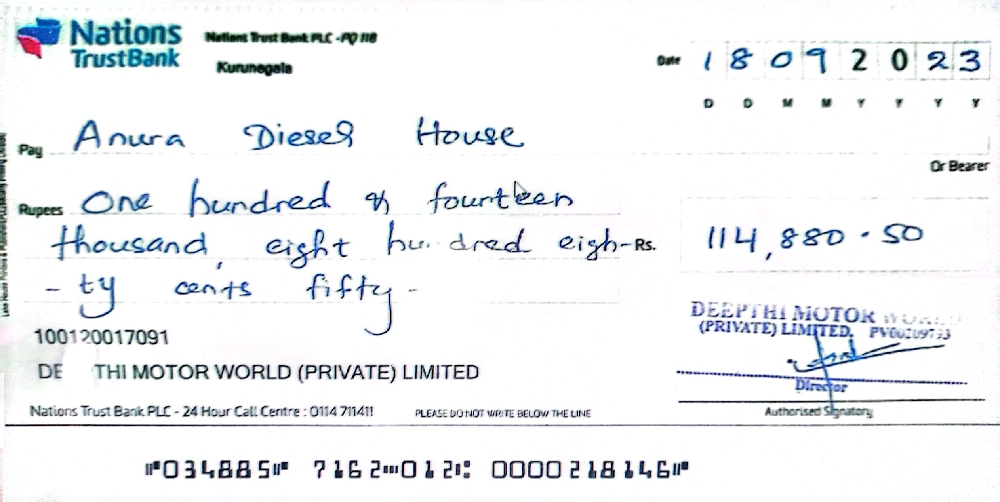 Nations
TrustBank
Nations Trust Bank PLC - PQ 118
Kurunegala
Date 1 8 0 9 2 0 2 3
D D M M Y Y Y Y
Pay Anura Diesel House
Or Bearer
Rupees One hundred & fourteen
thousand, eight hundred eigh-
- ty cents fifty -
Rs. 114,880.50
100120017091
DE THI MOTOR WORLD (PRIVATE) LIMITED
DEEPTHI MOTOR
(PRIVATE) LIMITED. PV00209793
Director
Authorised Signatory
Nations Trust Bank PLC - 24 Hour Call Centre : 0114 711411
PLEASE DO NOT WRITE BELOW THE LINE
⑈034885⑈ 7162⑉012⑆ 0000218146⑈